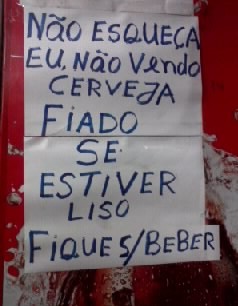 NÃO ESQUEÇA
EU, NÃO VENDO
CERVEJA
FIADO
SE
ESTIVER
LISO
FIQUE S/BEBER